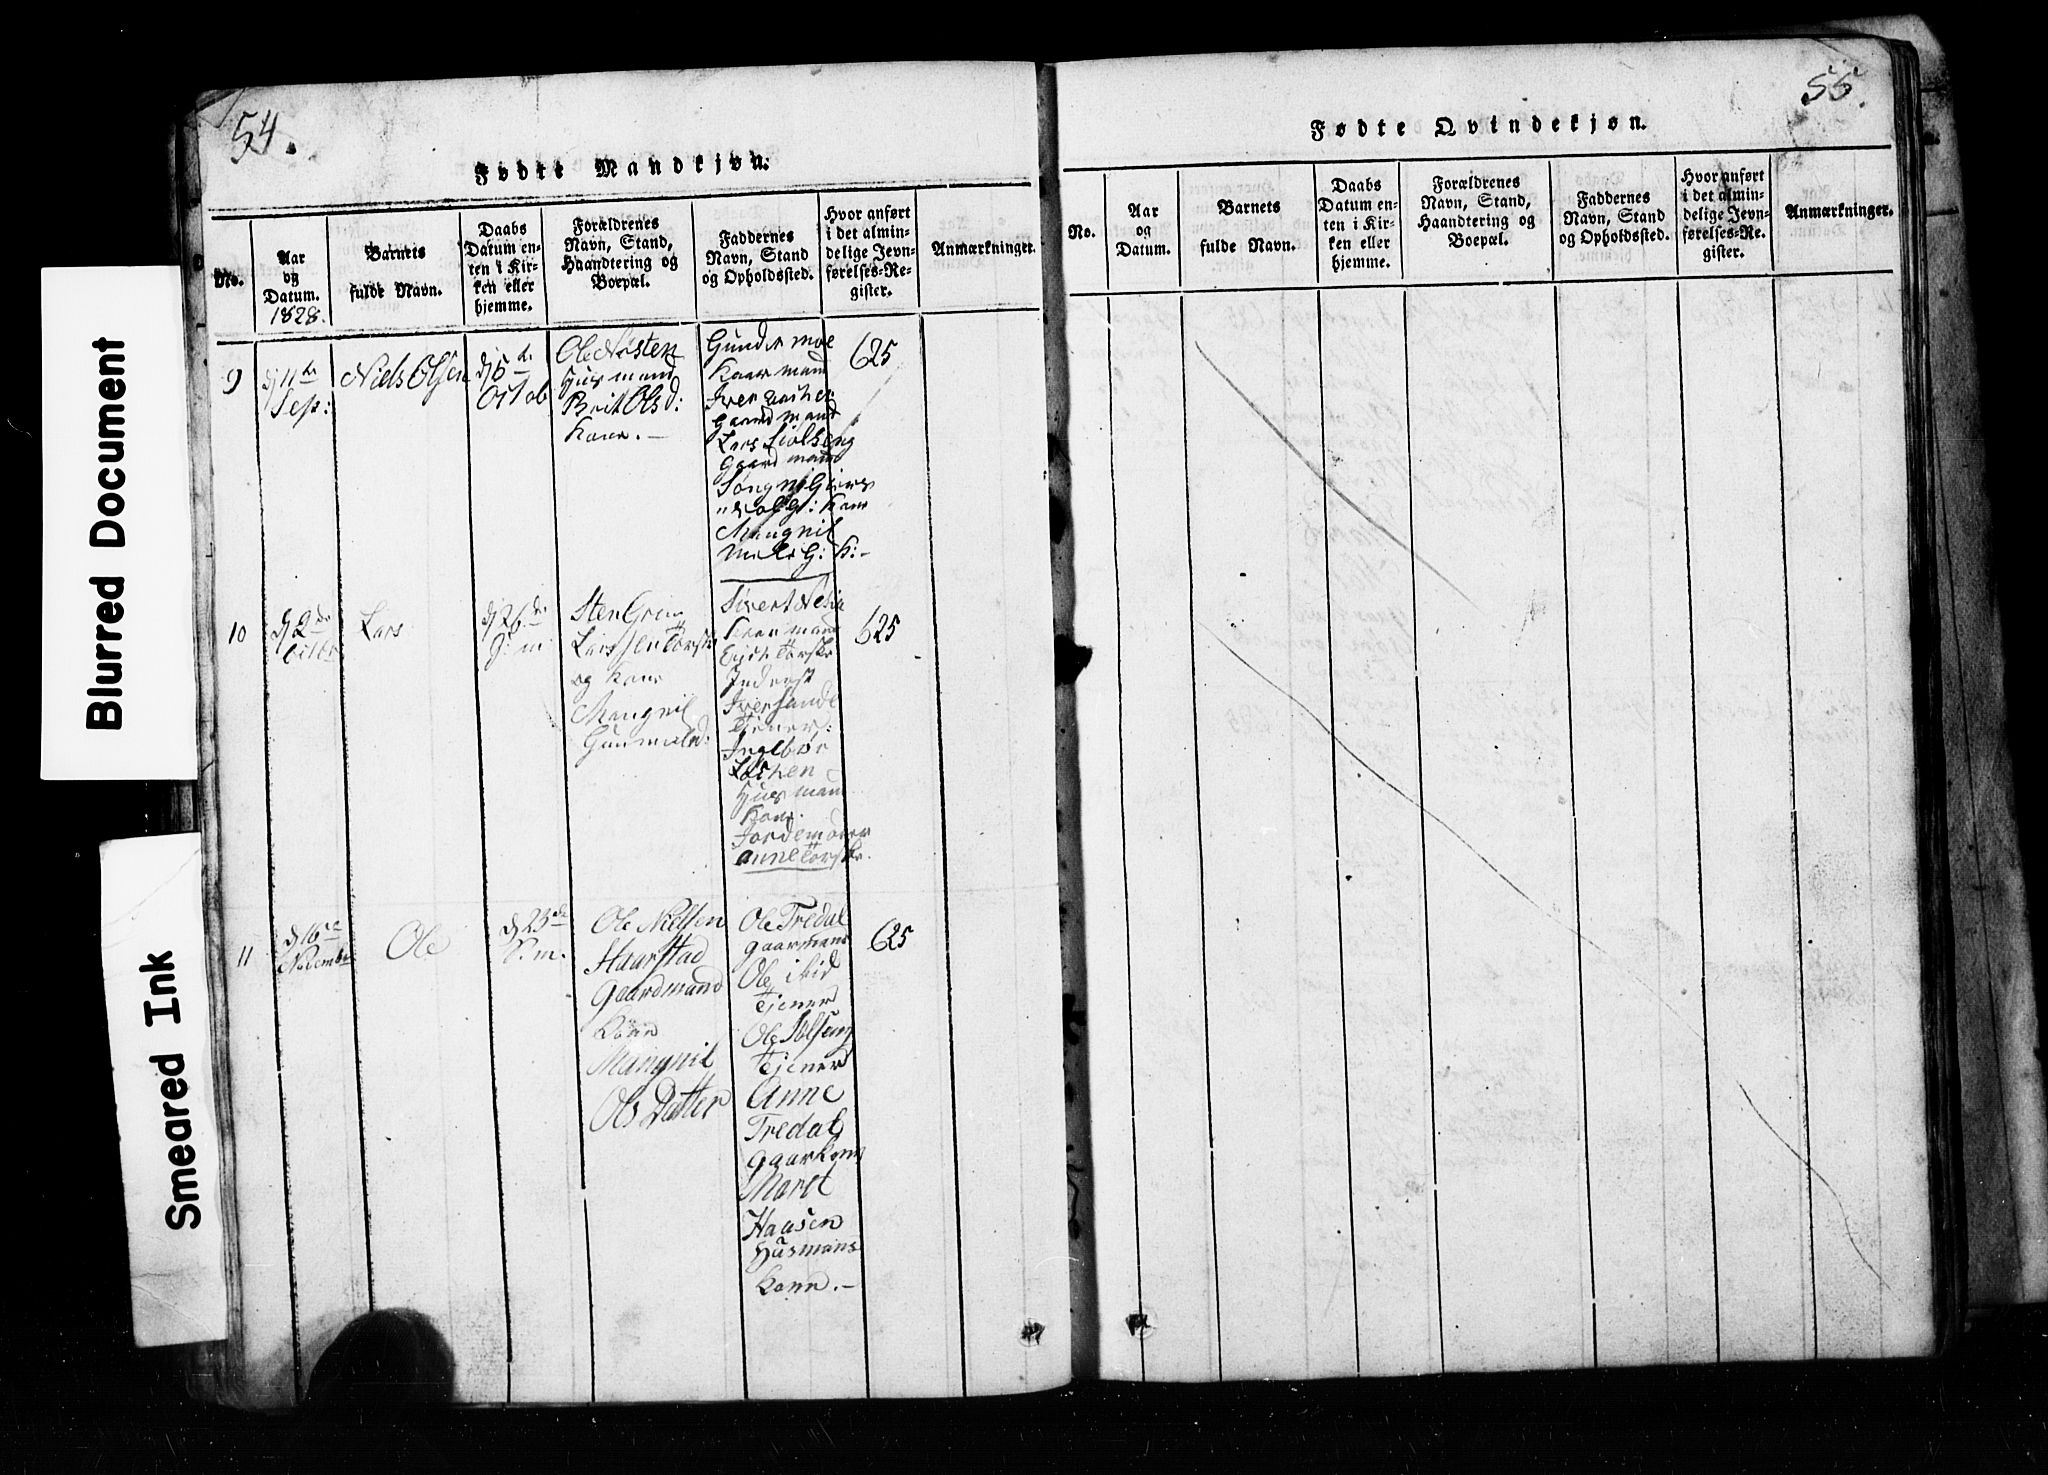 Blurred Document
Smeared Ink
54.
Fødte Mandkjøn.
No.
Aar
og
Datum.
1828.
Barnets
fulde Navn.
Daabs
Datum en-
ten i Kir-
ken eller
hjemme.
Forældrenes
Navn, Stand,
Haandtering og
Boepæl.
Faddernes
Navn, Stand
og Opholdssted.
Hvor anført
i det almin-
delige Jevn-
førelses-Re-
gister.
Anmærkninger.
9
dj 11te
Sep:
Niels Olsen
Octob
Ole
Husmand
Brit Olsd:
Kone.—
Gunder moe
Kaarmand
Iver
gaardmand
Lars
gaardmand
Kone
Mangnil
G: K:-
625
10
dj 2den
Octbr
Lars
dj 26de
S: m
Sten
Larssen Torske
og Kone
Mangnil
Sivert
Kaarmand
Torske
Inderst
Iver Sande
Tjener:
Ingebor
Husmand
Kone.
Jordemoder
Anne Torske.
625
11
dj 16de
November
Ole
dj 23de
S. m.
Ole Nielsen
Haarstad
Gaardmand
Kone
Mangnil
Ols Datter
Ole Tredal
gaarmand
Ole
Tjener
Ole Solseng
Tjener
Anne
Tredal
gaarkone
Maret
Haasen
Husmans
Kone.—
625
55.
Fødte Qvindekjøn.
No.
Aar
og
Datum.
Barnets
fulde Navn.
Daabs
Datum en-
ten i Kir-
ken eller
hjemme.
Forældrenes
Navn, Stand,
Haandtering og
Boepæl.
Faddernes
Navn, Stand
og Opholdssted.
Hvor anført
i det almin-
delige Jevn-
førelses-Re-
gister.
Anmærkninger.